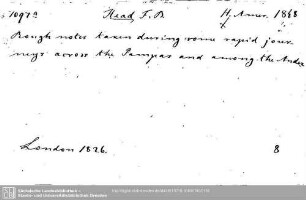 1097a Head F. B. H. Amer. 1868
Rough notes taken during some rapid jour
neys across the Pampas and among the Andes
London 1826. 8
Sächsische Landesbibliothek -
Staats- und Universitätsbibliothek Dresden